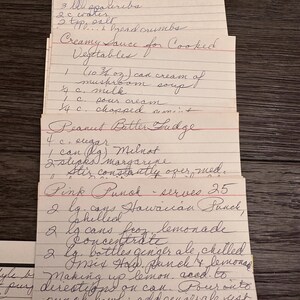 3 lbs spareribs
2 c. water
2 tsp. salt
bread crumbs
Creamy Sauce for Cooked
Vegetables
1 (10¾ oz) can cream of
mushroom soup
¼ c. milk
½ c. sour cream
¼ c. chopped
Peanut Butter Fudge
4 c. sugar
1 can (lg) Milnot
2 sticks margarine
Stir constantly over med.
Pink Punch - serves 25
2 lg. cans Hawaiian Punch,
chilled
2 lg cans froz. lemonade
concentrate
2 lg bottles ginger ale, chilled
Mix Haw. Punch & lemonade
Making up lemon. acc'd to
directions on can. Pour into
punch bowl; add ginger ale just